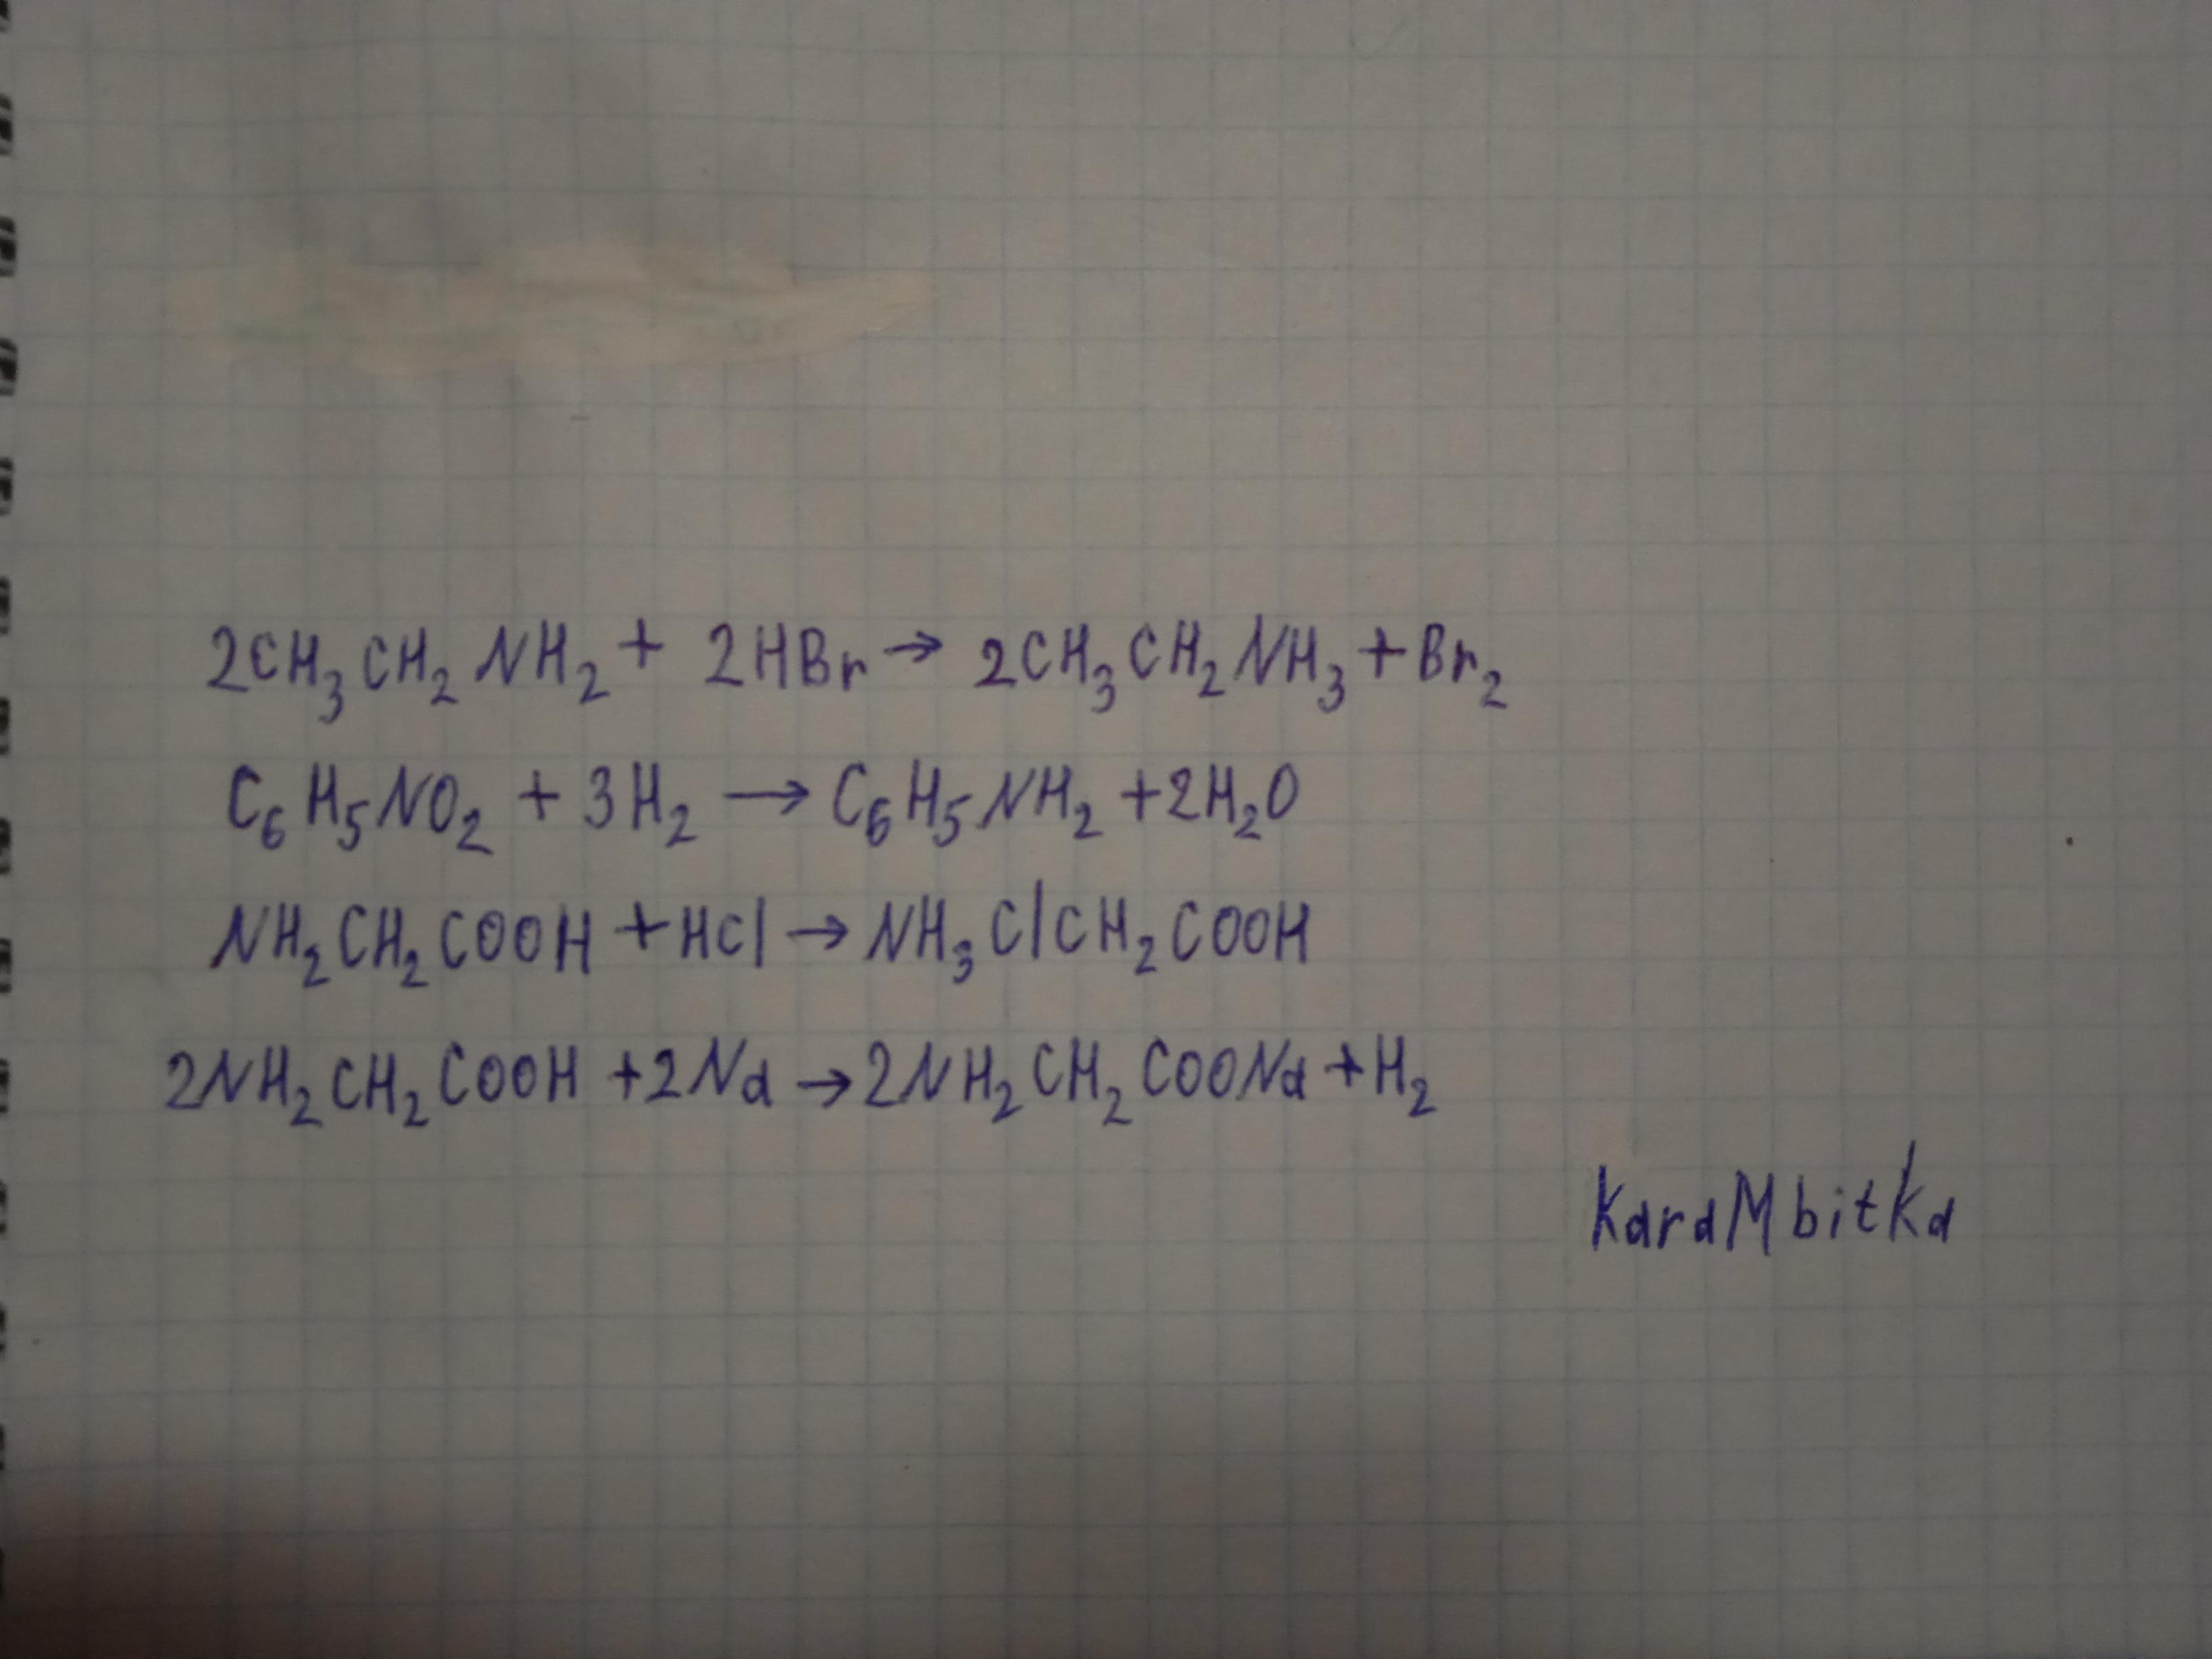 2CH₃CH₂NH₂ + 2HBr → 2CH₃CH₂NH₃ + Br₂
C₆H₅NO₂ + 3H₂ → C₆H₅NH₂ + 2H₂O
NH₂CH₂COOH + HCl → NH₃ClCH₂COOH
2NH₂CH₂COOH + 2Na → 2NH₂CH₂COONa + H₂
KaraMbitka